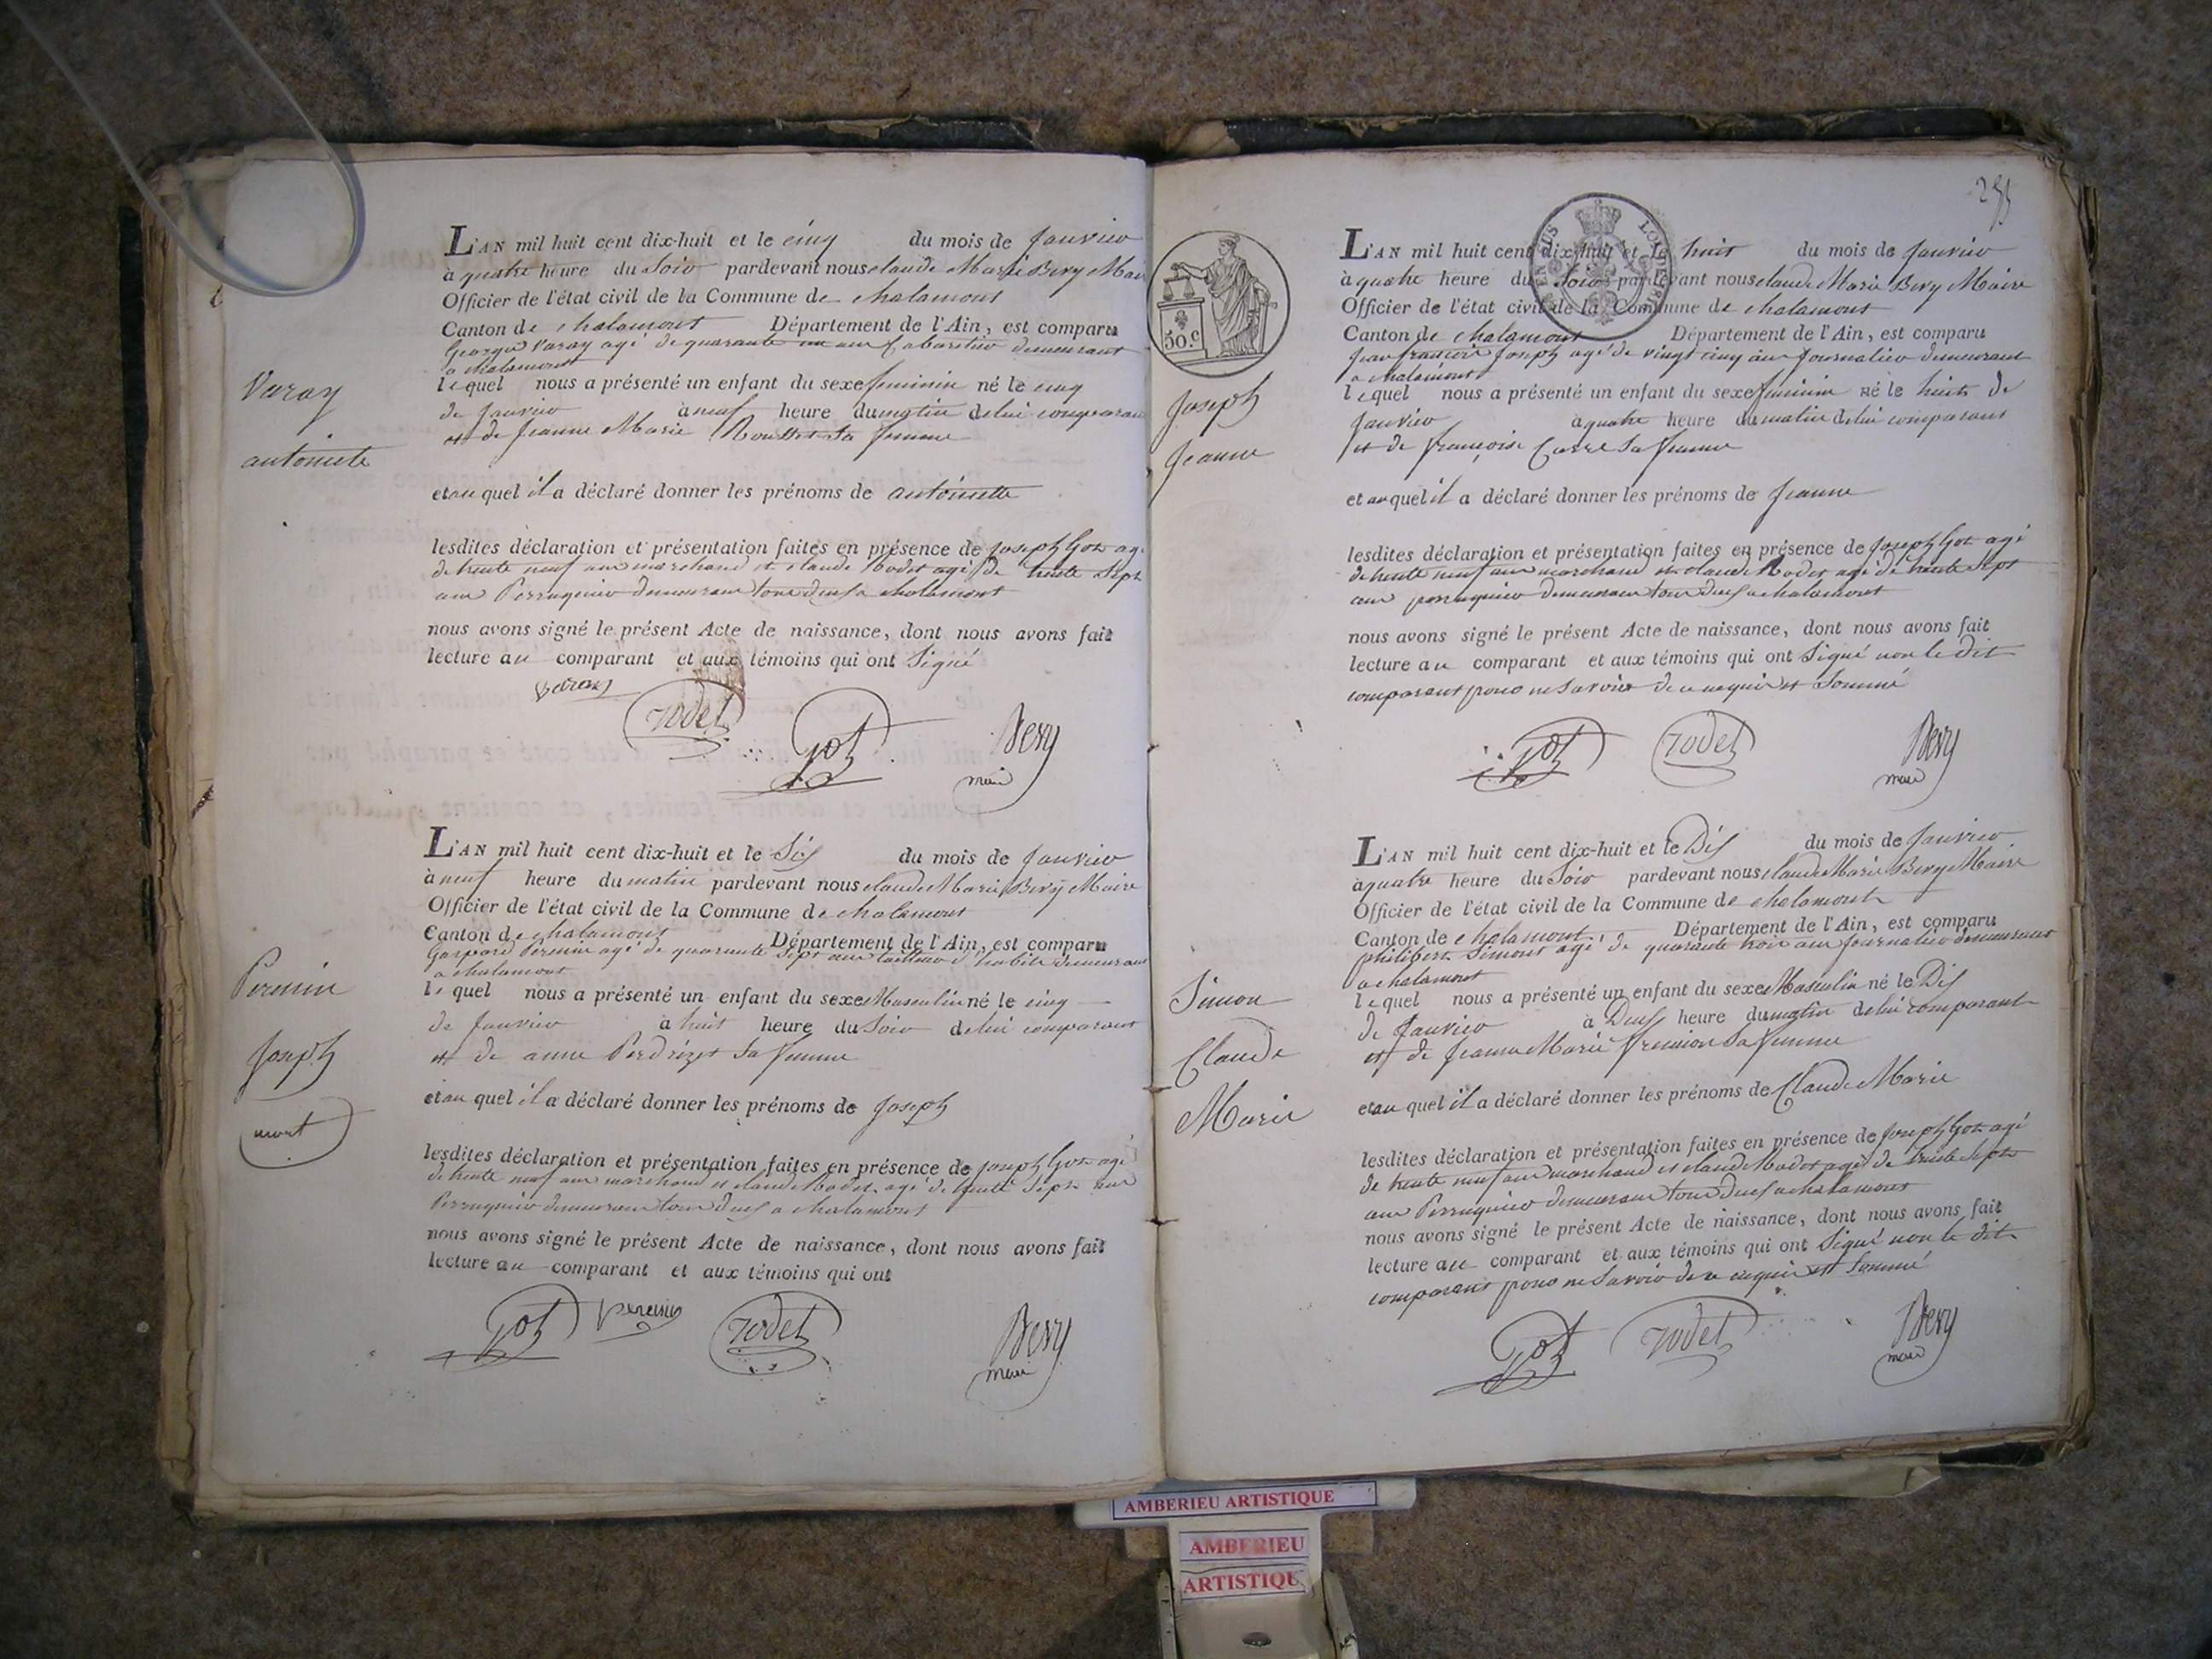 Varay
antoinette
L'AN mil huit cent dix-huit et le cinq du mois de Janvier
à quatre heure du Soir pardevant nous claude Marie Bevy Mai
Officier de l'état civil de la Commune de chalamont
Canton de chalamont Département de l'Ain, est comparu
George Varay agé de quarante un ans Cabaretier demeurant
a chalamont
lequel nous a présenté un enfant du sexe feminin né le cinq
de Janvier à neuf heure du matin de lui comparant
et de Jeanne Marie Rousset Sa femme
et au quel il a déclaré donner les prénoms de antoinette
lesdites déclaration et présentation faites en présence de Joseph Got agé
de trente neuf ans marchand et claude Rodet agé de trente Sept
ans Perruquier demeurant tous deux a chalamont
nous avons signé le présent Acte de naissance, dont nous avons fait
lecture au comparant et aux témoins qui ont Signé
varay
rodet Got Bevy
maire
Perenin
Joseph
mort
L'AN mil huit cent dix-huit et le Six du mois de Janvier
à neuf heure du matin pardevant nous claude Marie Bevy Maire
Officier de l'état civil de la Commune de chalamont
Canton de chalamont Département de l'Ain, est comparu
Gaspard Perenin agé de quarante Sept ans tailleur d'habits demeurant
a chalamont
lequel nous a présenté un enfant du sexe Masculin né le cinq
de Janvier à huit heure du Soir de lui comparant
et de anne Perdrizet Sa femme
et au quel il a déclaré donner les prénoms de Joseph
lesdites déclaration et présentation faites en présence de Joseph Got agé
de trente neuf ans marchand et claude Rodet agé de trente Sept ans
Perruquier demeurant tous deux a chalamont
nous avons signé le présent Acte de naissance, dont nous avons fait
lecture au comparant et aux témoins qui ont
Got Perenin rodet Bevy
maire
50.c
Joseph
Jeanne
L'AN mil huit cent dix-huit et le huit du mois de Janvier
à quatre heure du Soir pardevant nous claude Marie Bevy Maire
Officier de l'état civil de la Commune de chalamont
Canton de chalamont Département de l'Ain, est comparu
Jean françois Joseph agé de vingt cinq ans Journalier demeurant
a chalamont
lequel nous a présenté un enfant du sexe feminin né le huit de
Janvier à quatre heure du matin de lui comparant
et de françoise Carre Sa femme
et au quel il a déclaré donner les prénoms de Jeanne
lesdites déclaration et présentation faites en présence de Joseph Got agé
de trente neuf ans marchand et claude Rodet agé de trente Sept
ans perruquier demeurant tous deux a chalamont
nous avons signé le présent Acte de naissance, dont nous avons fait
lecture au comparant et aux témoins qui ont Signé non le dit
comparant pour ne Savoir de ce enquis et Sommé
Got rodet Bevy
maire
Simon
Claude
Marie
L'AN mil huit cent dix-huit et le Dix du mois de Janvier
à quatre heure du Soir pardevant nous claude Marie Bevy Maire
Officier de l'état civil de la Commune de chalamont
Canton de chalamont Département de l'Ain, est comparu
philibert Simont agé de quarante trois ans Journalier demeurant
a chalamont
lequel nous a présenté un enfant du sexe Masculin né le Dix
de Janvier à Deux heure du matin de lui comparant
et de Jeanne Marie Sa femme
et au quel il a déclaré donner les prénoms de Claude Marie
lesdites déclaration et présentation faites en présence de Joseph Got agé
de trente neuf ans marchand et claude Rodet agé de trente Sept
ans Perruquier demeurant tous deux a chalamont
nous avons signé le présent Acte de naissance, dont nous avons fait
lecture au comparant et aux témoins qui ont Signé non le dit
comparant pour ne Savoir de ce enquis et Sommé
Got rodet Bevy
maire
AMBERIEU ARTISTIQUE
AMBERIEU
ARTISTIQU